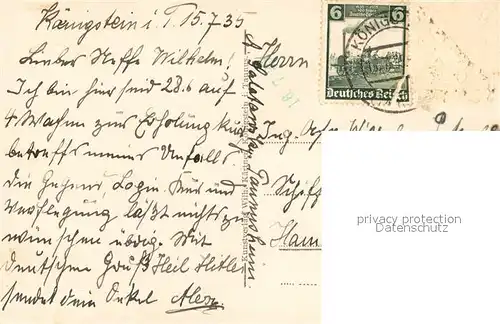 Königstein i. T. 15.7.35
Lieber Neffe Wilhelm!
Ich bin hier seid 28.6 auf
4 Wochen zur Erholung
betreffs meines Unfalls.
Die Gegend, Logie. Kur und
Verpflegung läszt nichts zu
wünschen übrig. Mit
deutschem Grusz Heil Hitler
sendet dein Onkel Alex
Taunusheim
Herrn
Ing.
Schiff
Ham
6
6
Deutsches Reich
KÖNIG
privacy protection
Datenschutz